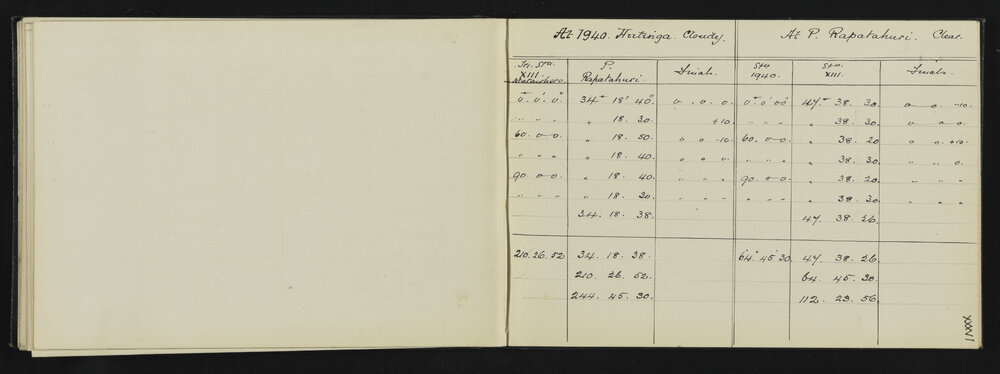 At 1940. Hatinga. Cloudy. At P. Rapatahuri. Clear.
Tri. Stn. XIII. P. Rapatahuri. Finals. Stn 1940. Stn. XIII. Finals.
0° 0' 0" 34° 18' 40" 0 . 0 . 0 0° 0' 00 47° 38. 30. 0 0. -10.
" " " " 18. 30. +10. " " " " 38. 30. 0 0 0.
60. 0-0. " 18. 50. 0 0 -10. 60. 0-0. " 38. 20 0 0. +10.
" " " " 18. 40. 0 0 0. " " " " 38. 30. " " 0.
90. 0-0 " 18. 40. " " " 90. 0-0. " 38. 20. " " "
" " " " 18. 30. " " " " " " " 38. 30. " " "
34. 18. 38. 47. 38. 26.
210. 26. 52 34. 18. 38. 64° 45' 30. 47. 38. 26
210. 26. 52. 64. 45. 30.
244. 45. 30. 112. 23. 56.
XXXVI